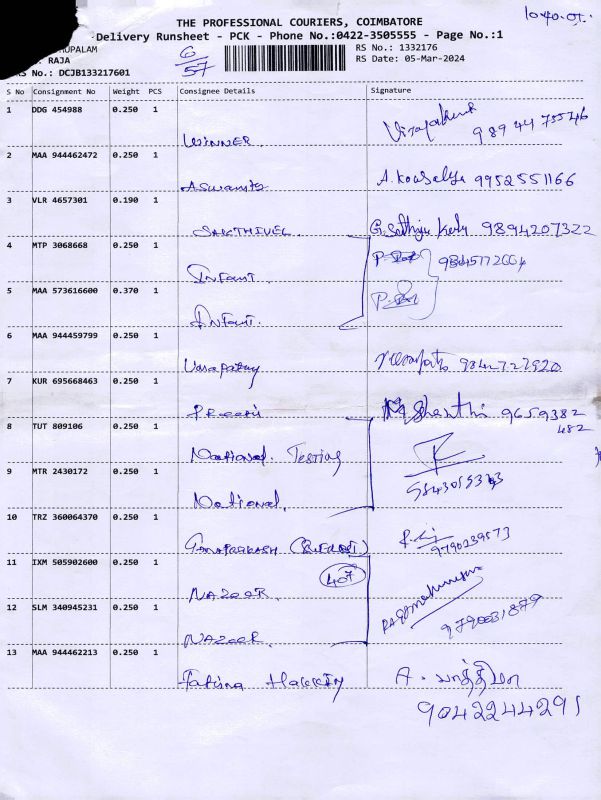 10.40.
THE PROFESSIONAL COURIERS, COIMBATORE
Delivery Runsheet - PCK - Phone No.:0422-3505555 - Page No.:1
UPALAM
6/57
RS No.: 1332176
RAJA
RS Date: 05-Mar-2024
RS No.: DCJB133217601
S No Consignment No Weight PCS Consignee Details Signature
1 DDG 454988 0.250 1
WINNER
2 MAA 944462472 0.250 1
A. Kousalya 9952551166
3 VLR 4657301 0.190 1
SAKTHIVEL 9894207322
4 MTP 3068668 0.250 1
INFANT.
5 MAA 573616600 0.370 1
INFANT.
6 MAA 944459799 0.250 1
7 KUR 695668463 0.250 1
Shanthi 9659382
482
8 TUT 809106 0.250 1
National. Testing
9 MTR 2430172 0.250 1
National.
10 TRZ 360064370 0.250 1
9790239573
11 IXM 505902600 0.250 1
407
NAZEER.
12 SLM 340945231 0.250 1
NAZEER. 9790031879
13 MAA 944462213 0.250 1
Fatima A. பாத்திமா
9042244291